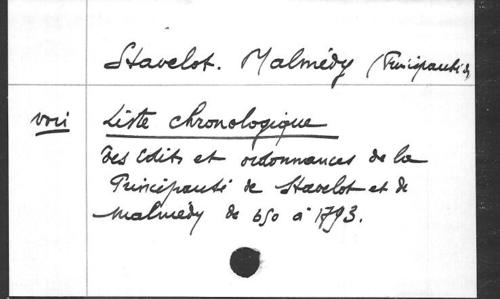 Stavelot. Malmédy (Principauté de
voir Liste chronologique
des Edits et ordonnances de la
Principauté de Stavelot et de
Malmédy de 650 à 1793.